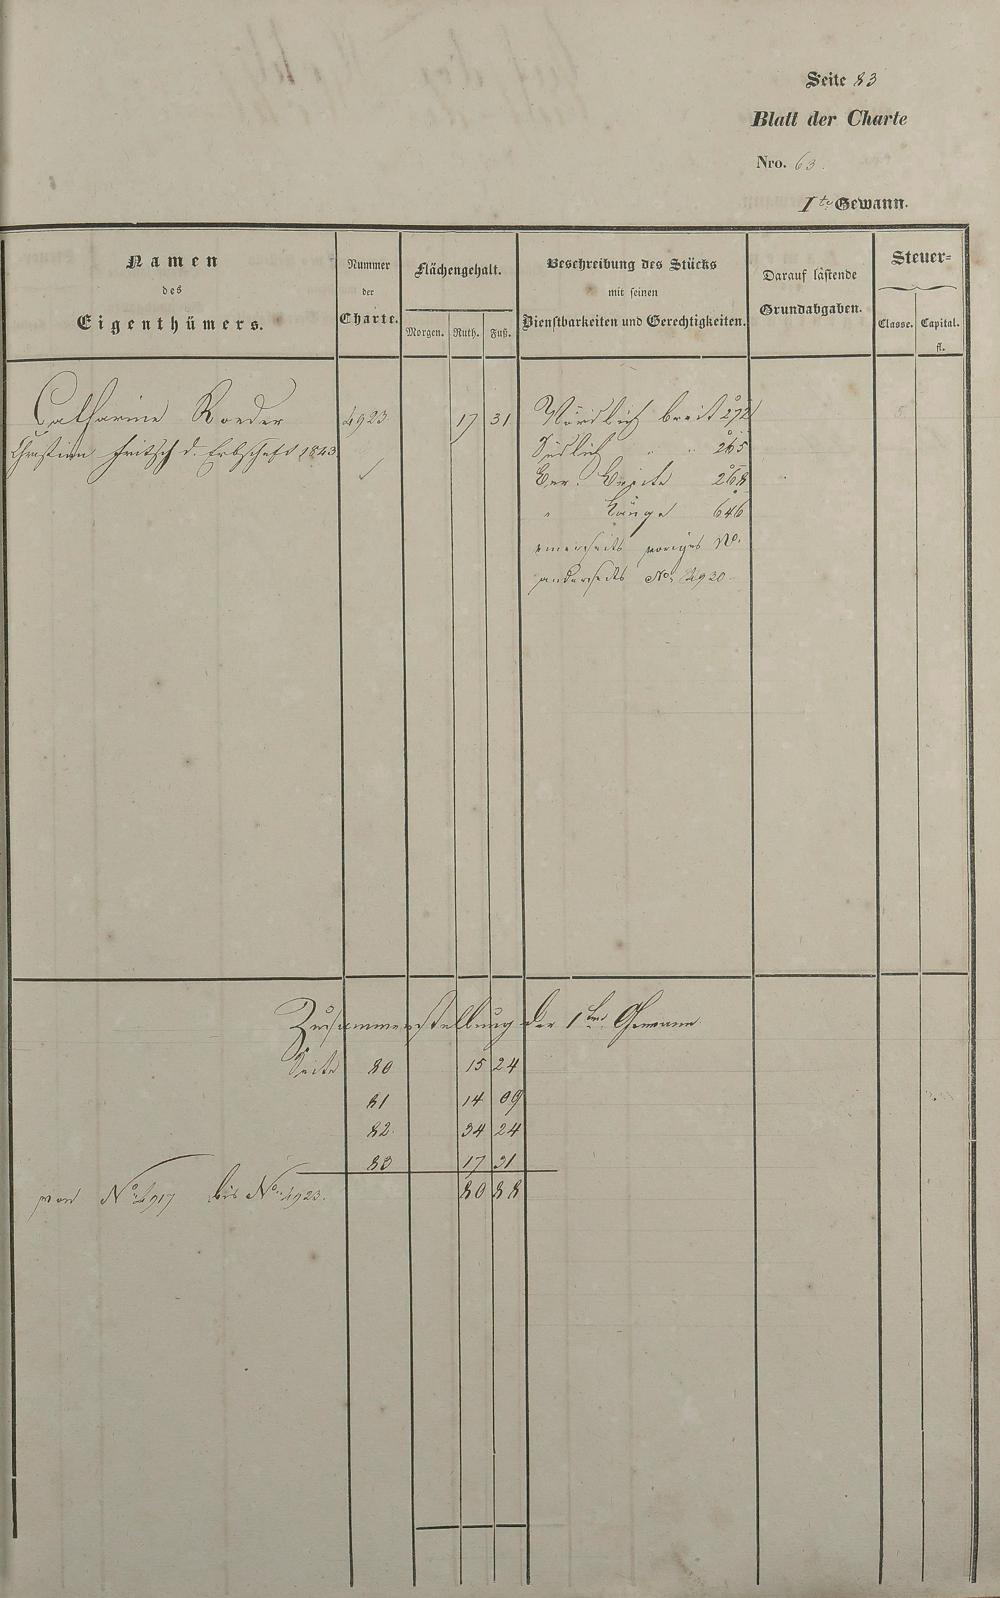 Seite 83
Blatt der Charte
Nro. 63.
Ite Gewann.
Namen
des
Eigenthümers.
Nummer
der
Charte.
Flächengehalt.
Morgen. Ruth. Fuß.
Beschreibung des Stücks
mit seinen
Dienstbarkeiten und Gerechtigkeiten.
Darauf lästende
Grundabgaben.
Steuer=
Classe. Capital.
fl.
Catharine Roeder 4923 17 31 Nördlich breit 272
Christian Fritsch d. Erbschaft 1843. Südlich " " 265
Ber. Breite 268
" Länge 646
einerseits voriges No.
anderseits No. 4920.
Zusammenstellung der 1ten Gewann
Seite 80 15 24
81 14 09
82. 34 24
83 17 31
von No. 4917 bis No. 4923. 80 88